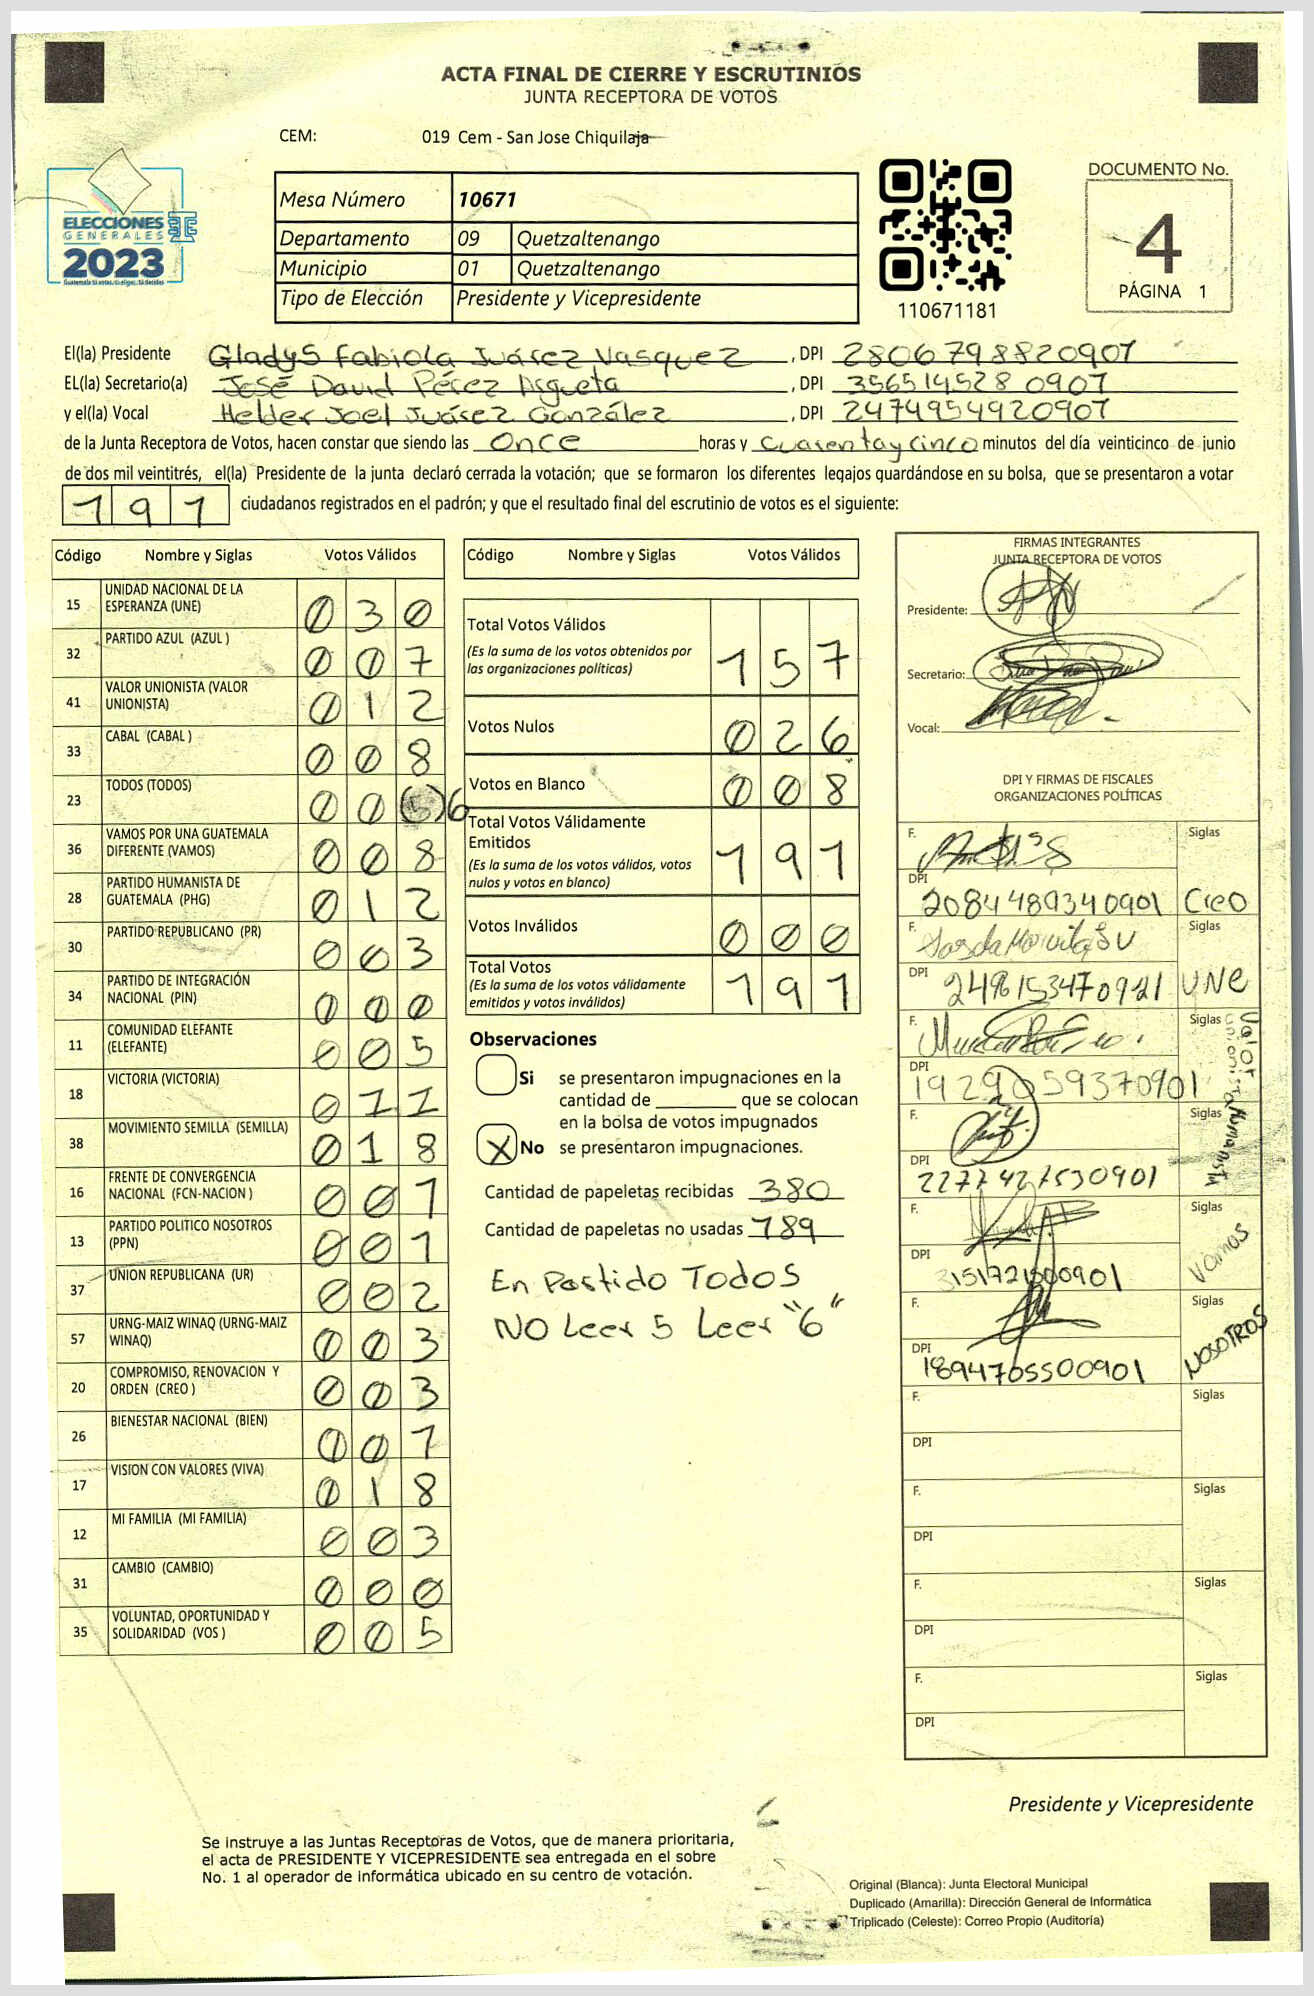 ACTA FINAL DE CIERRE Y ESCRUTINIOS
JUNTA RECEPTORA DE VOTOS
CEM: 019 Cem - San Jose Chiquilaja
ELECCIONES
GENERALES
2023
Guatemala tú votas, tú eliges, tú decides
Mesa Número 10671
Departamento 09 Quetzaltenango
Municipio 01 Quetzaltenango
Tipo de Elección Presidente y Vicepresidente
110671181
DOCUMENTO No.
4
PÁGINA 1
El(la) Presidente Gladys Fabiola Juárez Vasquez, DPI 2806798820907
EL(la) Secretario(a) José David Pérez Argueta, DPI 3565145280907
y el(la) Vocal Helder Joel Juárez González, DPI 2474954920907
de la Junta Receptora de Votos, hacen constar que siendo las Once horas y Cuarenta y cinco minutos del día veinticinco de junio
de dos mil veintitrés, el(la) Presidente de la junta declaró cerrada la votación; que se formaron los diferentes legajos guardándose en su bolsa, que se presentaron a votar
191 ciudadanos registrados en el padrón; y que el resultado final del escrutinio de votos es el siguiente:
Código Nombre y Siglas Votos Válidos
15 UNIDAD NACIONAL DE LA ESPERANZA (UNE) 030
32 PARTIDO AZUL (AZUL ) 007
41 VALOR UNIONISTA (VALOR UNIONISTA) 012
33 CABAL (CABAL ) 008
23 TODOS (TODOS) 00(5)6
36 VAMOS POR UNA GUATEMALA DIFERENTE (VAMOS) 008
28 PARTIDO HUMANISTA DE GUATEMALA (PHG) 012
30 PARTIDO REPUBLICANO (PR) 003
34 PARTIDO DE INTEGRACIÓN NACIONAL (PIN) 000
11 COMUNIDAD ELEFANTE (ELEFANTE) 005
18 VICTORIA (VICTORIA) 011
38 MOVIMIENTO SEMILLA (SEMILLA) 018
16 FRENTE DE CONVERGENCIA NACIONAL (FCN-NACION ) 001
13 PARTIDO POLITICO NOSOTROS (PPN) 001
37 UNION REPUBLICANA (UR) 002
57 URNG-MAIZ WINAQ (URNG-MAIZ WINAQ) 003
20 COMPROMISO, RENOVACION Y ORDEN (CREO ) 003
26 BIENESTAR NACIONAL (BIEN) 001
17 VISION CON VALORES (VIVA) 018
12 MI FAMILIA (MI FAMILIA) 003
31 CAMBIO (CAMBIO) 000
35 VOLUNTAD, OPORTUNIDAD Y SOLIDARIDAD (VOS ) 005
Código Nombre y Siglas Votos Válidos
Total Votos Válidos 157
(Es la suma de los votos obtenidos por
las organizaciones políticas)
Votos Nulos 026
Votos en Blanco 008
Total Votos Válidamente
Emitidos 191
(Es la suma de los votos válidos, votos
nulos y votos en blanco)
Votos Inválidos 000
Total Votos 191
(Es la suma de los votos válidamente
emitidos y votos inválidos)
Observaciones
Si se presentaron impugnaciones en la
cantidad de ________ que se colocan
en la bolsa de votos impugnados
X No se presentaron impugnaciones.
Cantidad de papeletas recibidas 380
Cantidad de papeletas no usadas 189
En Partido Todos
NO Leer 5 Leer "6"
FIRMAS INTEGRANTES
JUNTA RECEPTORA DE VOTOS
Presidente:
Secretario:
Vocal:
DPI Y FIRMAS DE FISCALES
ORGANIZACIONES POLÍTICAS
F. Siglas
DPI 2084489340901 Creo
F. Siglas
DPI 2496153470921 UNE
F. Siglas Valor Unionista
DPI 1929059370901
F. Siglas Humanista
DPI 2277427530901
F. Siglas Vamos
DPI 3151721500901
F. Siglas NOSOTROS
DPI 1894705500901
F. Siglas
DPI
F. Siglas
DPI
F. Siglas
DPI
F. Siglas
DPI
Presidente y Vicepresidente
Se instruye a las Juntas Receptoras de Votos, que de manera prioritaria,
el acta de PRESIDENTE Y VICEPRESIDENTE sea entregada en el sobre
No. 1 al operador de informática ubicado en su centro de votación.
Original (Blanca): Junta Electoral Municipal
Duplicado (Amarilla): Dirección General de Informática
Triplicado (Celeste): Correo Propio (Auditoría)